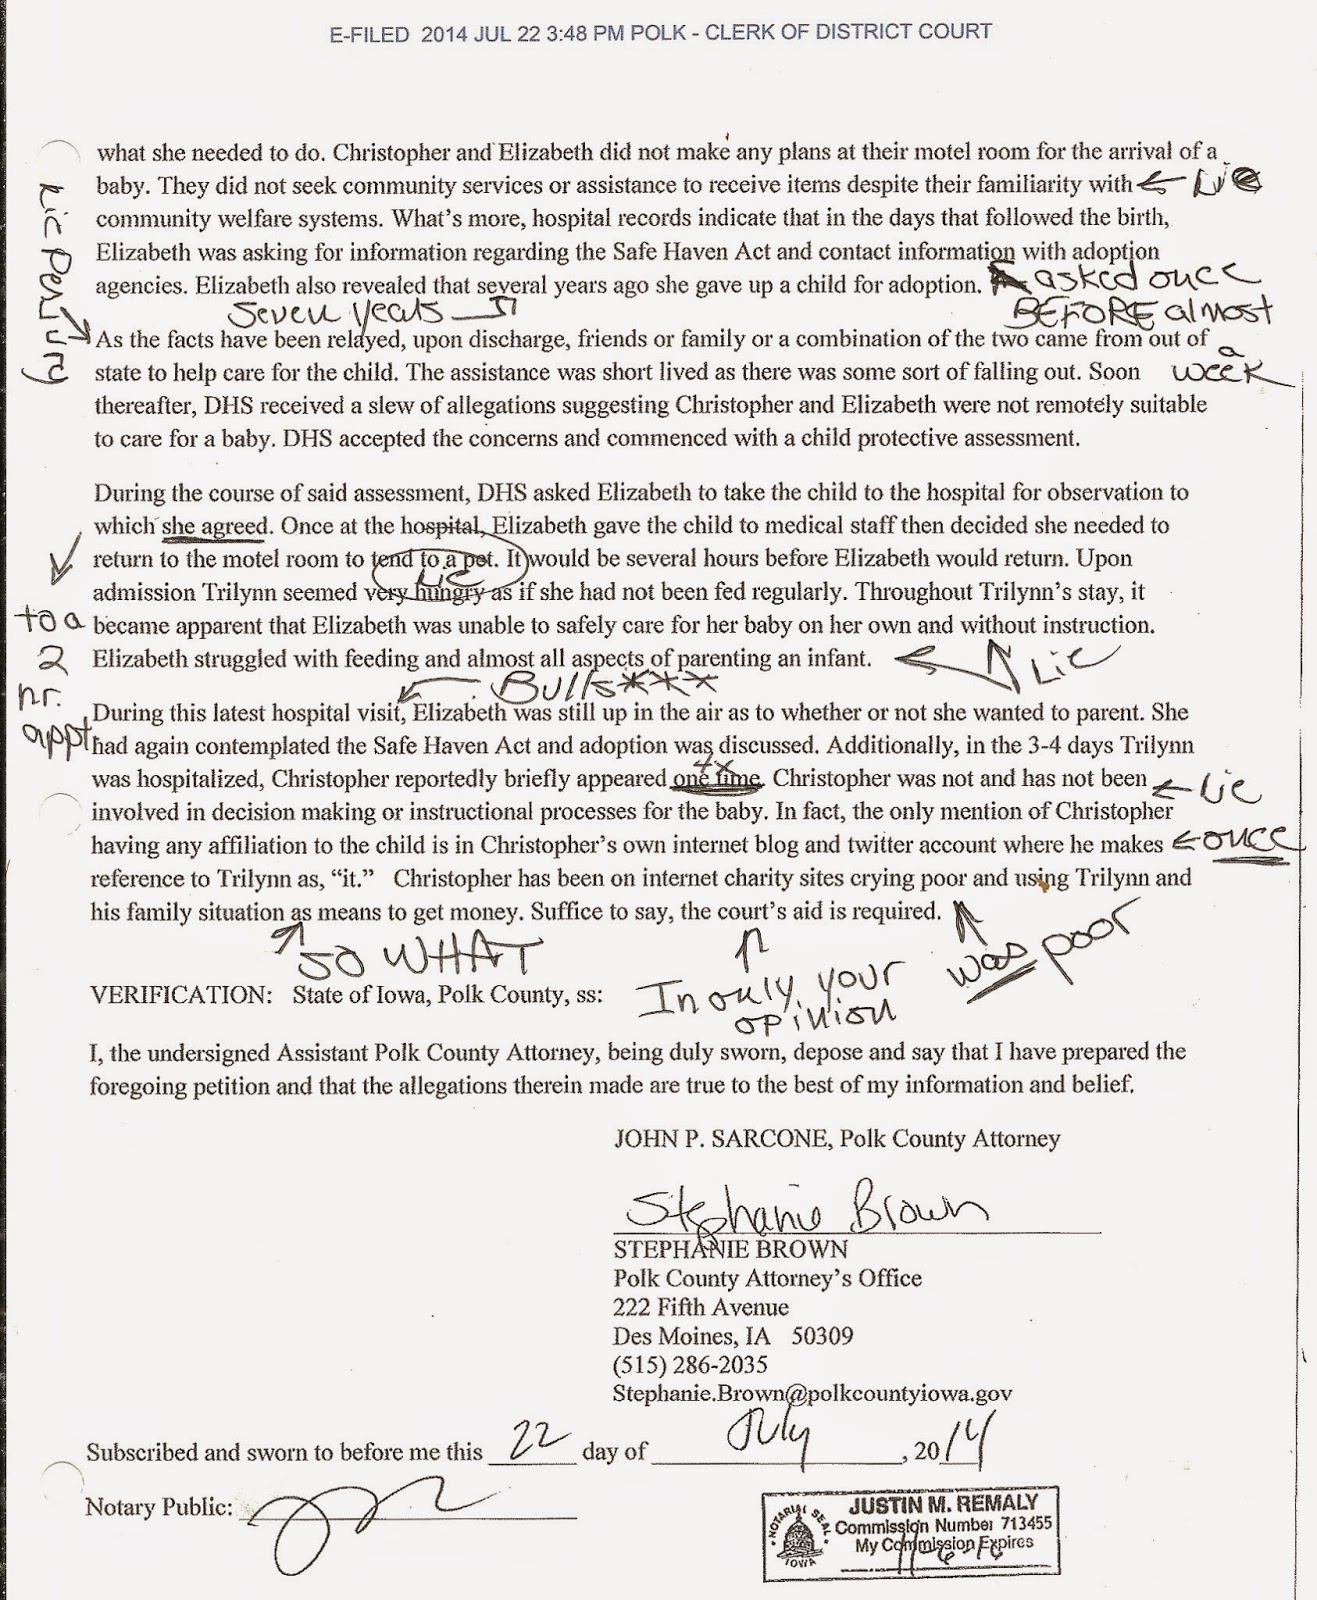 E-FILED 2014 JUL 22 3:48 PM POLK - CLERK OF DISTRICT COURT
what she needed to do. Christopher and Elizabeth did not make any plans at their motel room for the arrival of a
baby. They did not seek community services or assistance to receive items despite their familiarity with ← Lie
community welfare systems. What's more, hospital records indicate that in the days that followed the birth,
Elizabeth was asking for information regarding the Safe Haven Act and contact information with adoption
agencies. Elizabeth also revealed that several years ago she gave up a child for adoption. asked once
Seven years
BEFORE almost
a
week
Lie Perjury
As the facts have been relayed, upon discharge, friends or family or a combination of the two came from out of
state to help care for the child. The assistance was short lived as there was some sort of falling out. Soon
thereafter, DHS received a slew of allegations suggesting Christopher and Elizabeth were not remotely suitable
to care for a baby. DHS accepted the concerns and commenced with a child protective assessment.
During the course of said assessment, DHS asked Elizabeth to take the child to the hospital for observation to
which she agreed. Once at the hospital, Elizabeth gave the child to medical staff then decided she needed to
return to the motel room to tend to a pet. It would be several hours before Elizabeth would return. Upon
Lie
admission Trilynn seemed very hungry as if she had not been fed regularly. Throughout Trilynn's stay, it
became apparent that Elizabeth was unable to safely care for her baby on her own and without instruction.
Elizabeth struggled with feeding and almost all aspects of parenting an infant. ← Lie
to a
2
hr.
appt
Bulls***
During this latest hospital visit, Elizabeth was still up in the air as to whether or not she wanted to parent. She
had again contemplated the Safe Haven Act and adoption was discussed. Additionally, in the 3-4 days Trilynn
4x
was hospitalized, Christopher reportedly briefly appeared one time. Christopher was not and has not been ← Lie
involved in decision making or instructional processes for the baby. In fact, the only mention of Christopher
having any affiliation to the child is in Christopher's own internet blog and twitter account where he makes ← once
reference to Trilynn as, “it.” Christopher has been on internet charity sites crying poor and using Trilynn and
his family situation as means to get money. Suffice to say, the court's aid is required.
SO WHAT
In only your
opinion
was poor
VERIFICATION: State of Iowa, Polk County, ss:
I, the undersigned Assistant Polk County Attorney, being duly sworn, depose and say that I have prepared the
foregoing petition and that the allegations therein made are true to the best of my information and belief.
JOHN P. SARCONE, Polk County Attorney
Stephanie Brown
STEPHANIE BROWN
Polk County Attorney's Office
222 Fifth Avenue
Des Moines, IA 50309
(515) 286-2035
Stephanie.Brown@polkcountyiowa.gov
Subscribed and sworn to before me this 22 day of July, 2014
Notary Public:
NOTARIAL SEAL
IOWA
JUSTIN M. REMALY
Commission Number 713455
My Commission Expires